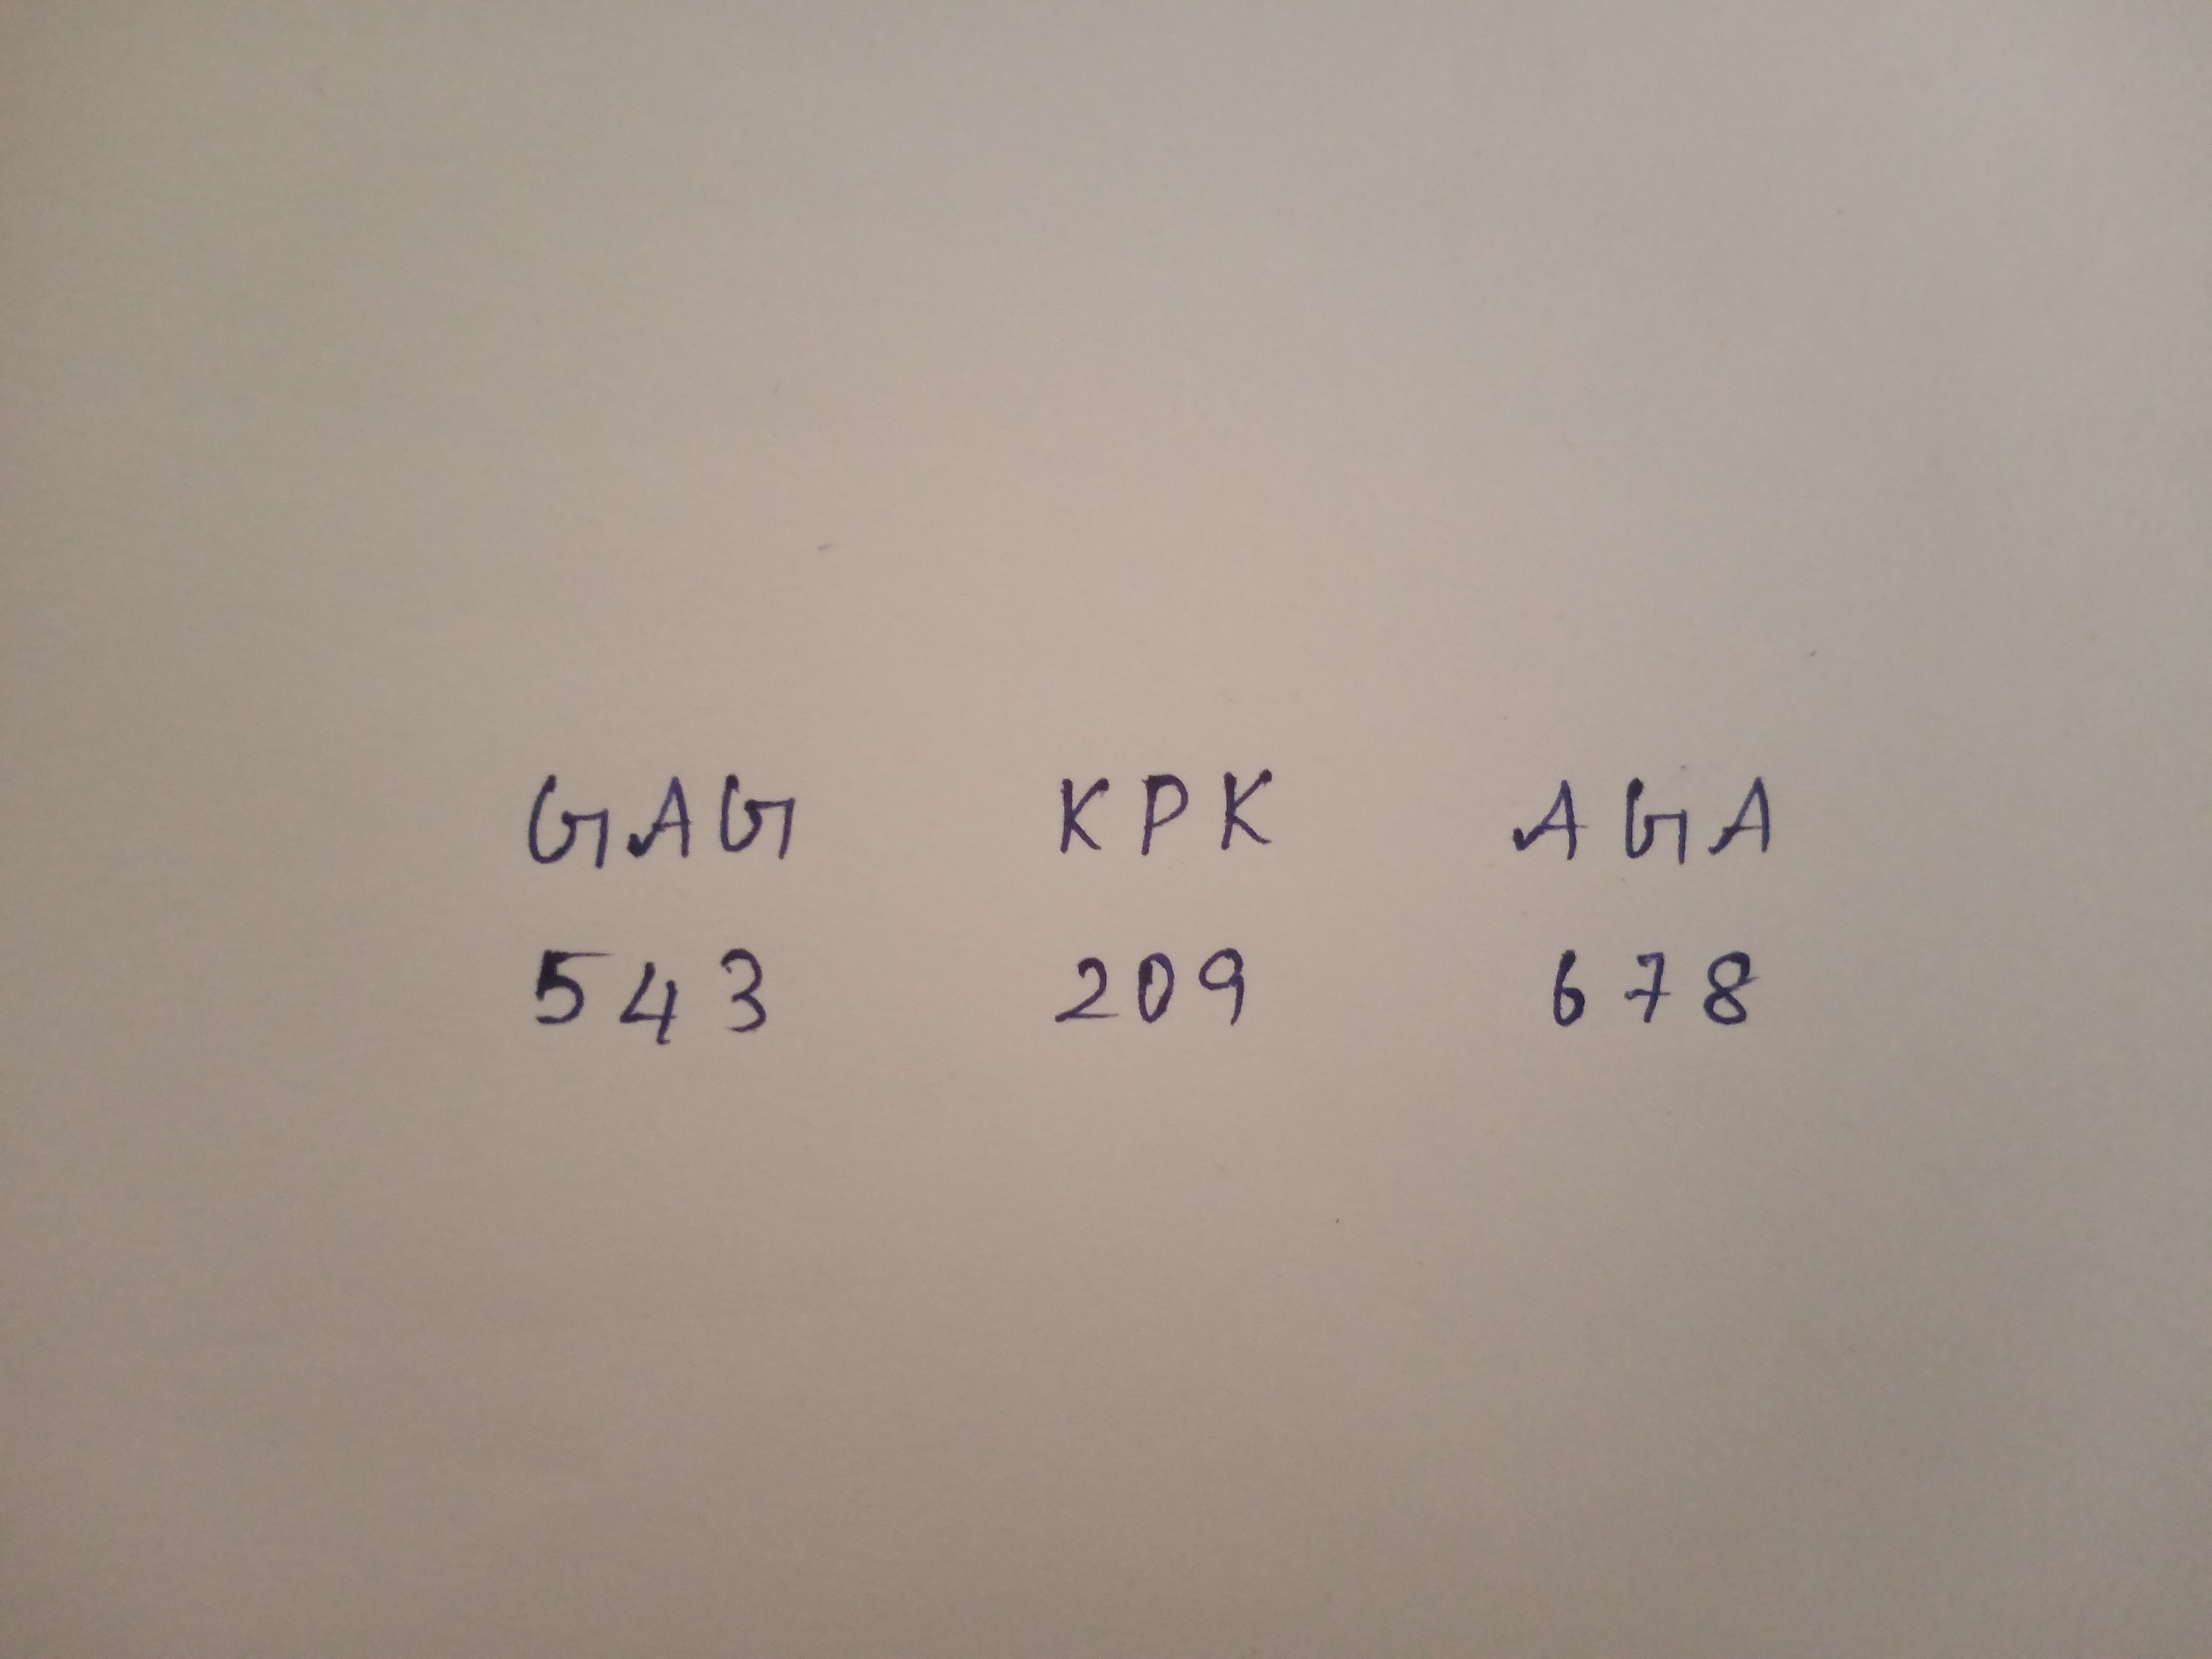 GAG KPK AGA
543 209 678